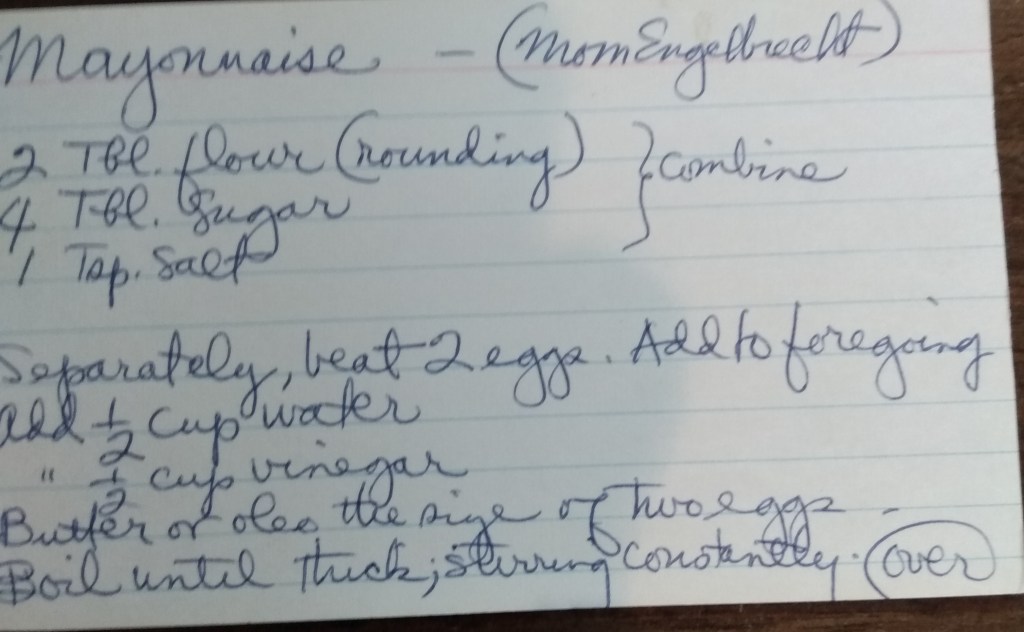 Mayonnaise - (Mom Engelbrecht)
2 Tbl. flour (rounding) } combine
4 Tbl. Sugar
1 Tsp. Salt
Separately, beat 2 eggs. Add to foregoing
Add 1/2 cup water
" 1/2 cup vinegar
Butter or oleo the size of two eggs -
Boil until thick; stirring constantly. (over)